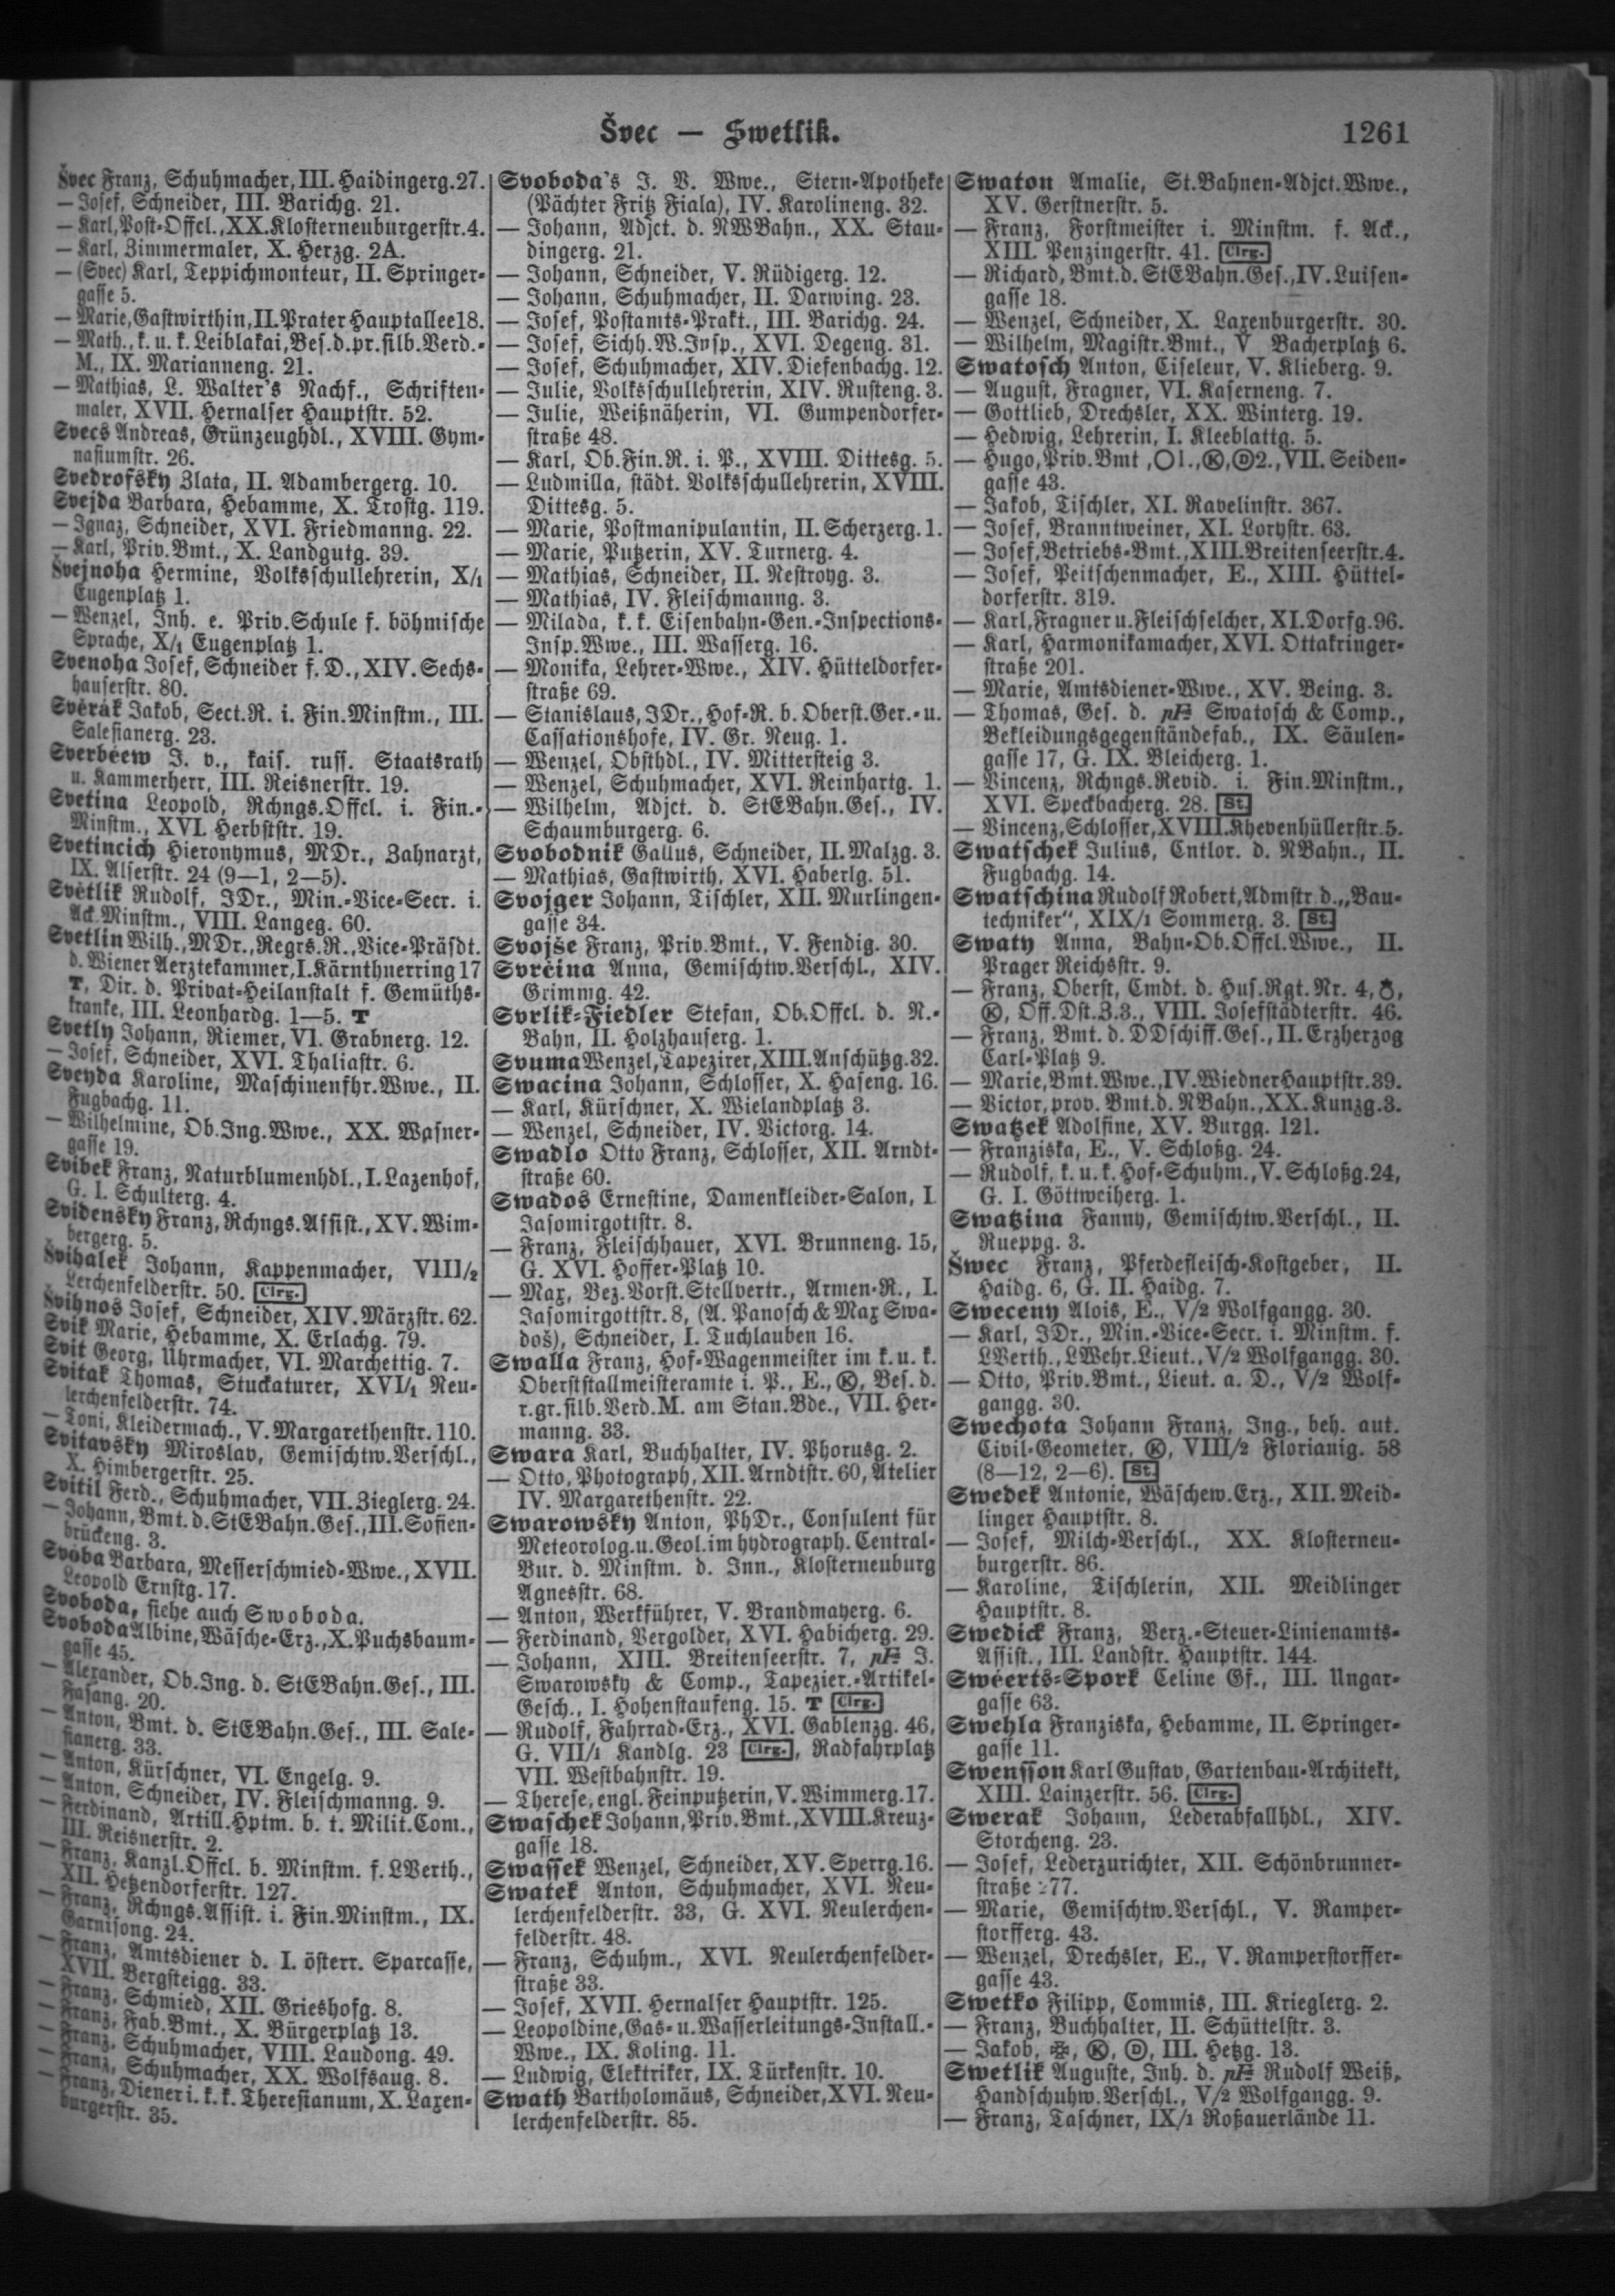 Švec — Swetlik.
1261
Švec Franz, Schuhmacher, III. Haidingerg. 27.
— Josef, Schneider, III. Barichg. 21.
— Karl, Post-Offcl., XX. Klosterneuburgerstr. 4.
— Karl, Zimmermaler, X. Herzg. 2A.
— (Svec) Karl, Teppichmonteur, II. Springer-
gasse 5.
— Marie, Gastwirthin, II. Prater Hauptallee 18.
— Math., k. u. k. Leiblakai, Bes. d. pr. silb. Verd.-
M., IX. Marianneng. 21.
— Mathias, L. Walter's Nachf., Schriften-
maler, XVII. Hernalser Hauptstr. 52.
Svecs Andreas, Grünzeughdl., XVIII. Gym-
nasiumstr. 26.
Svedrofsky Zlata, II. Adambergerg. 10.
Svejda Barbara, Hebamme, X. Trostg. 119.
— Ignaz, Schneider, XVI. Friedmanng. 22.
— Karl, Priv.Bmt., X. Landgutg. 39.
Švejnoha Hermine, Volksschullehrerin, X/1
Eugenplatz 1.
— Wenzel, Inh. e. Priv.Schule f. böhmische
Sprache, X/1 Eugenplatz 1.
Svenoha Josef, Schneider f. D., XIV. Sechs-
hauserstr. 80.
Svěrák Jakob, Sect.R. i. Fin.Minstm., III.
Salesianerg. 23.
Sverbéew J. v., kais. russ. Staatsrath
u. Kammerherr, III. Reisnerstr. 19.
Svetina Leopold, Rchngs.Offcl. i. Fin.-
Minstm., XVI. Herbststr. 19.
Svetincich Hieronymus, MDr., Zahnarzt,
IX. Alserstr. 24 (9—1, 2—5).
Světlik Rudolf, JDr., Min.-Vice-Secr. i.
Ack.Minstm., VIII. Langeg. 60.
Svetlin Wilh., MDr., Regrs.R., Vice-Präsdt.
d. Wiener Aerztekammer, I. Kärnthnerring 17
T, Dir. d. Privat-Heilanstalt f. Gemüths-
kranke, III. Leonhardg. 1—5. T
Svetly Johann, Riemer, VI. Grabnerg. 12.
— Josef, Schneider, XVI. Thaliastr. 6.
Sveyda Karoline, Maschinenfhr.Wwe., II.
Fugbachg. 11.
— Wilhelmine, Ob.Ing.Wwe., XX. Wasner-
gasse 19.
Svibek Franz, Naturblumenhdl., I. Lazenhof,
G. I. Schulterg. 4.
Svidensky Franz, Rchngs.Assist., XV. Wim-
bergerg. 5.
Švihalek Johann, Kappenmacher, VIII/2
Lerchenfelderstr. 50. Clrg.
Švihnos Josef, Schneider, XIV. Märzstr. 62.
Svik Marie, Hebamme, X. Erlachg. 79.
Svit Georg, Uhrmacher, VI. Marchettig. 7.
Svitak Thomas, Stuckaturer, XVI/1 Neu-
lerchenfelderstr. 74.
— Toni, Kleidermach., V. Margarethenstr. 110.
Svitavsky Miroslav, Gemischtw.Verschl.,
X. Himbergerstr. 25.
Svitil Ferd., Schuhmacher, VII. Zieglerg. 24.
— Johann, Bmt. d. StEBahn.Ges., III. Sofien-
brückeng. 3.
Svoba Barbara, Messerschmied-Wwe., XVII.
Leopold Ernstg. 17.
Svoboda, siehe auch Swoboda.
Svoboda Albine, Wäsche-Erz., X. Puchsbaum-
gasse 45.
— Alexander, Ob.Ing. d. StEBahn.Ges., III.
Fasang. 20.
— Anton, Bmt. d. StEBahn.Ges., III. Sale-
sianerg. 33.
— Anton, Kürschner, VI. Engelg. 9.
— Anton, Schneider, IV. Fleischmanng. 9.
— Ferdinand, Artill.Hptm. b. t. Milit.Com.,
III. Reisnerstr. 2.
— Franz, Kanzl.Offcl. b. Minstm. f. LVerth.,
XII. Hetzendorferstr. 127.
— Franz, Rchngs.Assist. i. Fin.Minstm., IX.
Garnisong. 24.
— Franz, Amtsdiener d. I. österr. Sparcasse,
XVII. Bergsteigg. 33.
— Franz, Schmied, XII. Grieshofg. 8.
— Franz, Fab.Bmt., X. Bürgerplatz 13.
— Franz, Schuhmacher, VIII. Laudong. 49.
— Franz, Schuhmacher, XX. Wolfsaug. 8.
— Franz, Diener i. k. k. Theresianum, X. Laxen-
burgerstr. 35.
Svoboda's J. V. Wwe., Stern-Apotheke
(Pächter Fritz Fiala), IV. Karolineng. 32.
— Johann, Adjct. d. NWBahn., XX. Stau-
dingerg. 21.
— Johann, Schneider, V. Rüdigerg. 12.
— Johann, Schuhmacher, II. Darwing. 23.
— Josef, Postamts-Prakt., III. Barichg. 24.
— Josef, Sichh.W.Insp., XVI. Degeng. 31.
— Josef, Schuhmacher, XIV. Diefenbachg. 12.
— Julie, Volksschullehrerin, XIV. Rusteng. 3.
— Julie, Weißnäherin, VI. Gumpendorfer-
straße 48.
— Karl, Ob.Fin.R. i. P., XVIII. Dittesg. 5.
— Ludmilla, städt. Volksschullehrerin, XVIII.
Dittesg. 5.
— Marie, Postmanipulantin, II. Scherzerg. 1.
— Marie, Putzerin, XV. Turnerg. 4.
— Mathias, Schneider, II. Nestroyg. 3.
— Mathias, IV. Fleischmanng. 3.
— Milada, k. k. Eisenbahn-Gen.-Inspections-
Insp.Wwe., III. Wasserg. 16.
— Monika, Lehrer-Wwe., XIV. Hütteldorfer-
straße 69.
— Stanislaus, JDr., Hof-R. b. Oberst.Ger.- u.
Cassationshofe, IV. Gr. Neug. 1.
— Wenzel, Obsthdl., IV. Mittersteig 3.
— Wenzel, Schuhmacher, XVI. Reinhartg. 1.
— Wilhelm, Adjct. d. StEBahn.Ges., IV.
Schaumburgerg. 6.
Svobodnik Gallus, Schneider, II. Malzg. 3.
— Mathias, Gastwirth, XVI. Haberlg. 51.
Svojger Johann, Tischler, XII. Murlingen-
gasse 34.
Svojše Franz, Priv.Bmt., V. Fendig. 30.
Svrčina Anna, Gemischtw.Verschl., XIV.
Grimmg. 42.
Svrlik-Fiedler Stefan, Ob.Offcl. d. N.-
Bahn, II. Holzhauserg. 1.
Svuma Wenzel, Tapezirer, XIII. Anschützg. 32.
Swacina Johann, Schlosser, X. Haseng. 16.
— Karl, Kürschner, X. Wielandplatz 3.
— Wenzel, Schneider, IV. Victorg. 14.
Swadlo Otto Franz, Schlosser, XII. Arndt-
straße 60.
Swados Ernestine, Damenkleider-Salon, I
Jasomirgottstr. 8.
— Franz, Fleischhauer, XVI. Brunneng. 15,
G. XVI. Hoffer-Platz 10.
— Max, Bez.Vorst.Stellvertr., Armen-R., I.
Jasomirgottstr. 8, (A. Panosch & Max Swa-
doš), Schneider, I. Tuchlauben 16.
Swalla Franz, Hof-Wagenmeister im k. u. k.
Oberststallmeisteramte i. P., E., Ⓚ, Bes. d.
r. gr. silb. Verd.M. am Stan.Bde., VII. Her-
manng. 33.
Swara Karl, Buchhalter, IV. Phorusg. 2.
— Otto, Photograph, XII. Arndtstr. 60, Atelier
IV. Margarethenstr. 22.
Swarowsky Anton, PhDr., Consulent für
Meteorolog. u. Geol. im hydrograph. Central-
Bur. d. Minstm. d. Inn., Klosterneuburg
Agnesstr. 68.
— Anton, Werkführer, V. Brandmayerg. 6.
— Ferdinand, Vergolder, XVI. Habicherg. 29.
— Johann, XIII. Breitenseerstr. 7, pF J.
Swarowsky & Comp., Tapezier.-Artikel-
Gesch., I. Hohenstaufeng. 15. T Clrg.
— Rudolf, Fahrrad-Erz., XVI. Gablenzg. 46,
G. VII/1 Kandlg. 23 Clrg., Radfahrplatz
VII. Westbahnstr. 19.
— Therese, engl. Feinputzerin, V. Wimmerg. 17.
Swaschek Johann, Priv.Bmt., XVIII. Kreuz-
gasse 18.
Swassek Wenzel, Schneider, XV. Sperrg. 16.
Swatek Anton, Schuhmacher, XVI. Neu-
lerchenfelderstr. 33, G. XVI. Neulerchen-
felderstr. 48.
— Franz, Schuhm., XVI. Neulerchenfelder-
straße 33.
— Josef, XVII. Hernalser Hauptstr. 125.
— Leopoldine, Gas- u. Wasserleitungs-Install.-
Wwe., IX. Koling. 11.
— Ludwig, Elektriker, IX. Türkenstr. 10.
Swath Bartholomäus, Schneider, XVI. Neu-
lerchenfelderstr. 85.
Swaton Amalie, St.Bahnen-Adjct.Wwe.,
XV. Gerstnerstr. 5.
— Franz, Forstmeister i. Minstm. f. Ack.,
XIII. Penzingerstr. 41. Clrg.
— Richard, Bmt. d. StEBahn.Ges., IV. Luisen-
gasse 18.
— Wenzel, Schneider, X. Laxenburgerstr. 30.
— Wilhelm, Magistr.Bmt., V Bacherplatz 6.
Swatosch Anton, Ciseleur, V. Klieberg. 9.
— August, Fragner, VI. Kaserneng. 7.
— Gottlieb, Drechsler, XX. Winterg. 19.
— Hedwig, Lehrerin, I. Kleeblattg. 5.
— Hugo, Priv.Bmt, ◯1., Ⓚ, Ⓓ2., VII. Seiden-
gasse 43.
— Jakob, Tischler, XI. Ravelinstr. 367.
— Josef, Branntweiner, XI. Lorystr. 63.
— Josef, Betriebs-Bmt., XIII. Breitenseerstr. 4.
— Josef, Peitschenmacher, E., XIII. Hüttel-
dorferstr. 319.
— Karl, Fragner u. Fleischselcher, XI. Dorfg. 96.
— Karl, Harmonikamacher, XVI. Ottakringer-
straße 201.
— Marie, Amtsdiener-Wwe., XV. Being. 3.
— Thomas, Ges. d. pF Swatosch & Comp.,
Bekleidungsgegenständefab., IX. Säulen-
gasse 17, G. IX. Bleicherg. 1.
— Vincenz, Rchngs.Revid. i. Fin.Minstm.,
XVI. Speckbacherg. 28. St.
— Vincenz, Schlosser, XVIII. Khevenhüllerstr. 5.
Swatschek Julius, Cntlor. d. NBahn., II.
Fugbachg. 14.
Swatschina Rudolf Robert, Admstr d. „Bau-
techniker“, XIX/1 Sommerg. 3. St.
Swaty Anna, Bahn-Ob.Offcl.Wwe., II.
Prager Reichsstr. 9.
— Franz, Oberst, Cmdt. d. Hus.Rgt. Nr. 4,
Ⓚ, Off.Dst.Z.3., VIII. Josefstädterstr. 46.
— Franz, Bmt. d. DDschiff.Ges., II. Erzherzog
Carl-Platz 9.
— Marie, Bmt.Wwe., IV. Wiedner Hauptstr. 39.
— Victor, prov. Bmt. d. NBahn., XX. Kunzg. 3.
Swatzek Adolfine, XV. Burgg. 121.
— Franziska, E., V. Schloßg. 24.
— Rudolf, k. u. k. Hof-Schuhm., V. Schloßg. 24,
G. I. Göttweiherg. 1.
Swatzina Fanny, Gemischtw.Verschl., II.
Rueppg. 3.
Šwec Franz, Pferdefleisch-Kostgeber, II.
Haidg. 6, G. II. Haidg. 7.
Sweceny Alois, E., V/2 Wolfgangg. 30.
— Karl, JDr., Min.-Vice-Secr. i. Minstm. f.
LVerth., LWehr.Lieut., V/2 Wolfgangg. 30.
— Otto, Priv.Bmt., Lieut. a. D., V/2 Wolf-
gangg. 30.
Swechota Johann Franz, Ing., beh. aut.
Civil-Geometer, Ⓚ, VIII/2 Florianig. 58
(8—12, 2—6). St.
Swedek Antonie, Wäschew.Erz., XII. Meid-
linger Hauptstr. 8.
— Josef, Milch-Verschl., XX. Klosterneu-
burgerstr. 86.
— Karoline, Tischlerin, XII. Meidlinger
Hauptstr. 8.
Swedick Franz, Verz.-Steuer-Linienamts-
Assist., III. Landstr. Hauptstr. 144.
Swéerts-Spork Celine Gf., III. Ungar-
gasse 63.
Swehla Franziska, Hebamme, II. Springer-
gasse 11.
Swensson Karl Gustav, Gartenbau-Architekt,
XIII. Lainzerstr. 56. Clrg.
Swerak Johann, Lederabfallhdl., XIV.
Storcheng. 23.
— Josef, Lederzurichter, XII. Schönbrunner-
straße 77.
— Marie, Gemischtw.Verschl., V. Ramper-
storfferg. 43.
— Wenzel, Drechsler, E., V. Ramperstorffer-
gasse 43.
Swetko Filipp, Commis, III. Krieglerg. 2.
— Franz, Buchhalter, II. Schüttelstr. 3.
— Jakob, ✠, Ⓚ, Ⓓ, III. Hetzg. 13.
Swetlik Auguste, Inh. d. pF Rudolf Weiß,
Handschuhw.Verschl., V/2 Wolfgangg. 9.
— Franz, Taschner, IX/1 Roßauerlände 11.